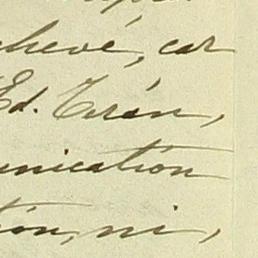 achevé, car
Ed. Trán,
munication
tion, ni,